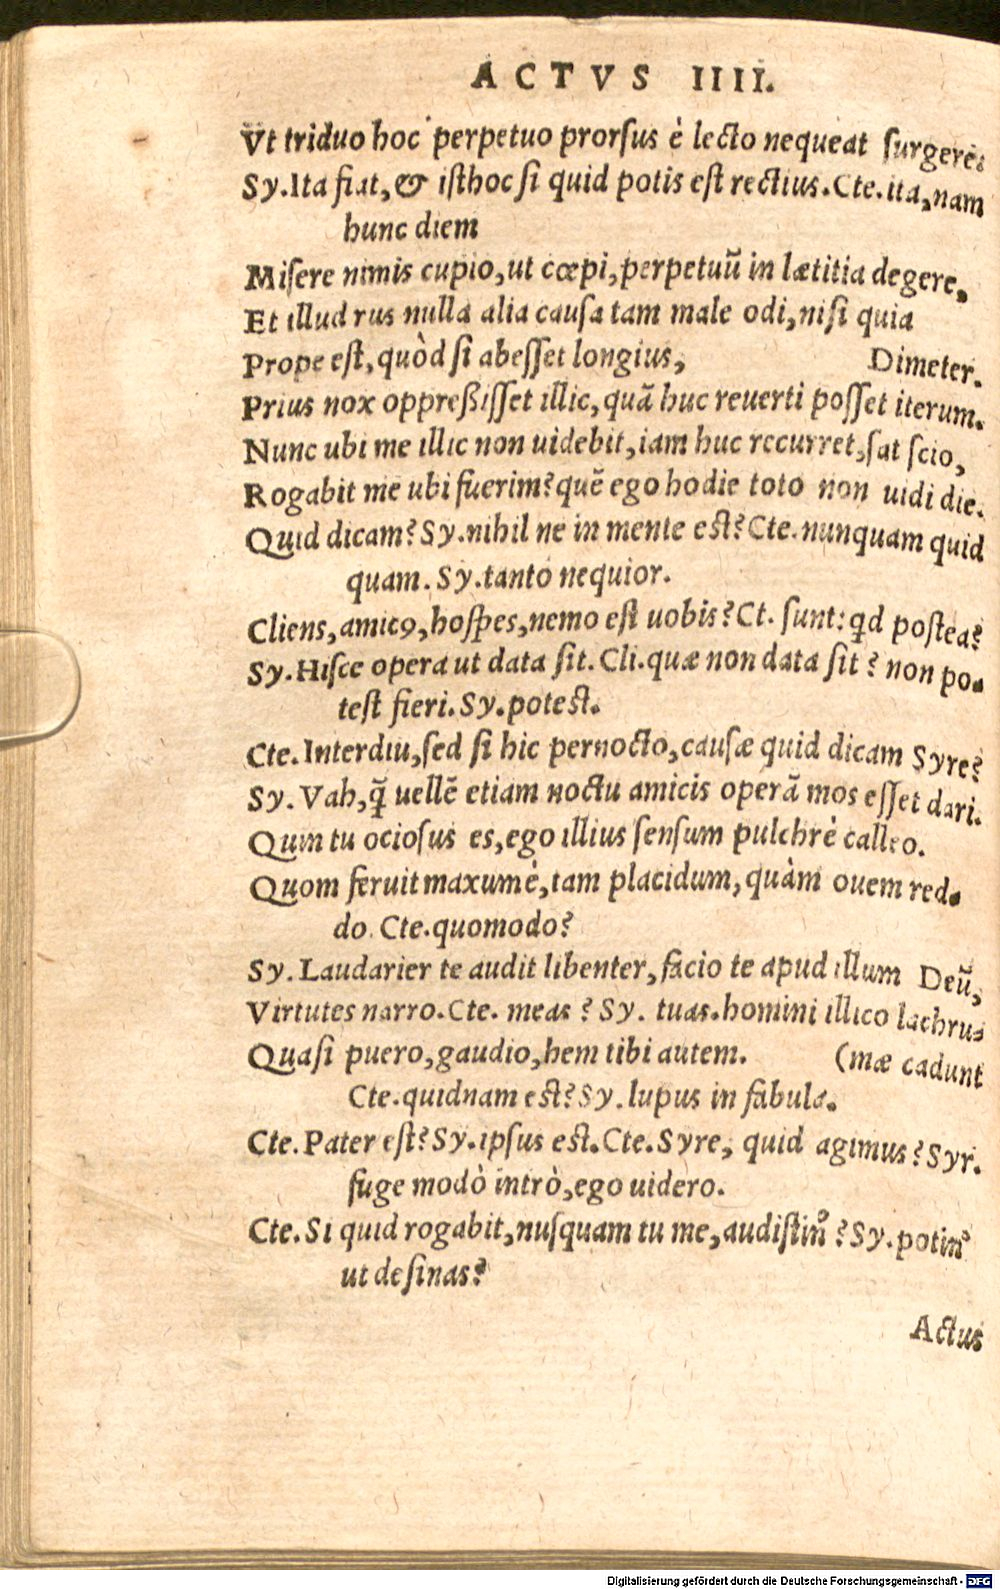 ACTVS IIII.
Vt triduo hoc perpetuo prorsus è lecto nequeat surgere.
Sy. Ita fiat, & isthoc si quid potis est rectius. Cte. ita, nam
hunc diem
Misere nimis cupio, ut cœpi, perpetuũ in lætitia degere,
Et illud rus nulla alia causa tam male odi, nisi quia
Prope est, quòd si abesset longius, Dimeter.
Prius nox oppreßisset illic, quã huc reuerti posset iterum.
Nunc ubi me illic non uidebit, iam huc recurret, sat scio,
Rogabit me ubi fuerim? quẽ ego hodie toto non uidi die.
Quid dicam? Sy. nihil ne in mente est? Cte. nunquam quid
quam. Sy. tanto nequior.
Cliens, amicꝰ, hospes, nemo est uobis? Ct. sunt: qd postea?
Sy. Hisce opera ut data sit. Cli. quæ non data sit? non po-
test fieri. Sy. potest.
Cte. Interdiu, sed si hic pernocto, causæ quid dicam Syre?
Sy. Vah, q̃ uellẽ etiam noctu amicis operã mos esset dari.
Quin tu ociosus es, ego illius sensum pulchrè calleo.
Quom feruit maxumè, tam placidum, quàm ouem red-
do. Cte. quomodo?
Sy. Laudarier te audit libenter, facio te apud illum Deũ,
Virtutes narro. Cte. meas? Sy. tuas. homini illico lachru-
Quasi puero, gaudio, hem tibi autem. (mæ cadunt
Cte. quidnam est? Sy. lupus in fabula.
Cte. Pater est? Sy. ipsus est. Cte. Syre, quid agimus? Syr.
fuge modò intrò, ego uidero.
Cte. Si quid rogabit, nusquam tu me, audistin'? Sy. potin'
ut desinas?
Actus
Digitalisierung gefördert durch die Deutsche Forschungsgemeinschaft - DFG